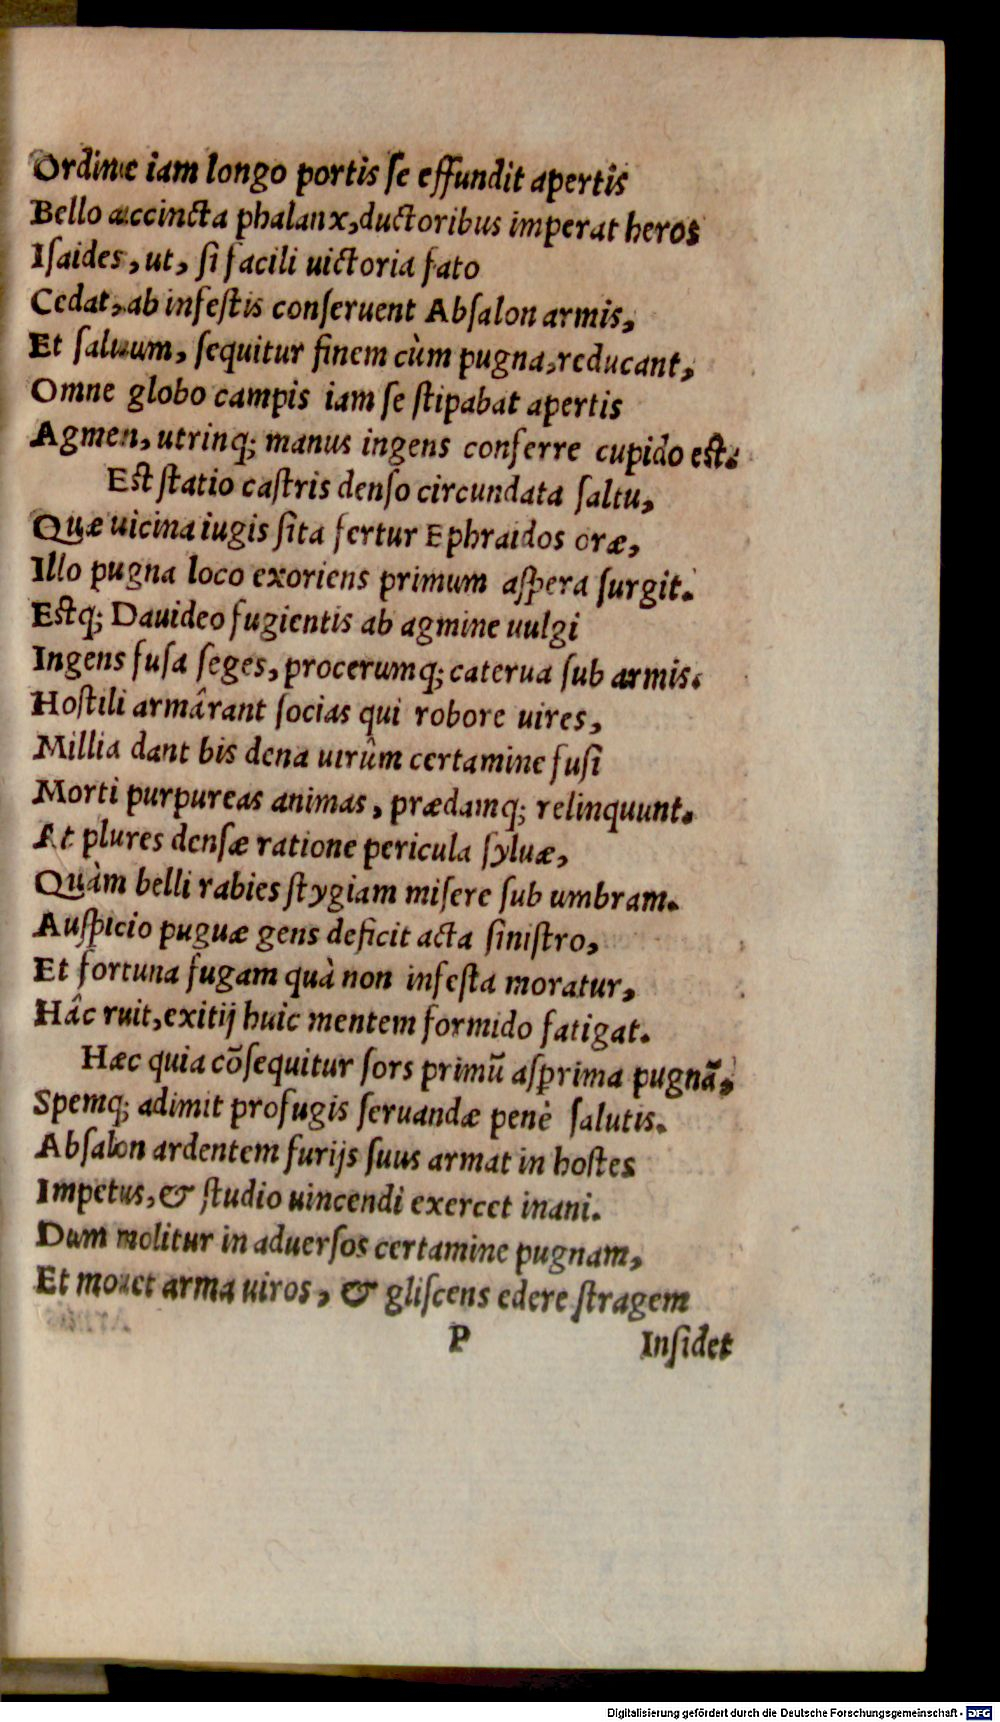 Ordine iam longo portis ſe effundit apertis
Bello accincta phalanx, ductoribus imperat heros
Iſaides, ut, ſi facili uictoria fato
Cedat, ab infeſtis conſeruent Abſalon armis,
Et ſaluum, ſequitur finem cùm pugna, reducant,
Omne globo campis iam ſe ſtipabat apertis
Agmen, utrinq; manus ingens conferre cupido eſt.
Eſt ſtatio caſtris denſo circundata ſaltu,
Quæ uicina iugis ſita fertur Ephraidos oræ,
Illo pugna loco exoriens primum aſpera ſurgit.
Eſtq; Dauideo fugientis ab agmine uulgi
Ingens fuſa ſeges, procerumq; caterua ſub armis.
Hoſtili armârant ſocias qui robore uires,
Millia dant bis dena uirûm certamine fuſi
Morti purpureas animas, prædamq; relinquunt.
At plures denſæ ratione pericula ſyluæ,
Quàm belli rabies ſtygiam miſere ſub umbram.
Auſpicio puguæ gens deficit acta ſiniſtro,
Et fortuna fugam quà non infeſta moratur,
Hâc ruit, exitij huic mentem formido fatigat.
Hæc quia cōſequitur ſors primū aſprima pugnā,
Spemq; adimit profugis ſeruandæ penè ſalutis.
Abſalon ardentem furijs ſuus armat in hoſtes
Impetus, & ſtudio uincendi exercet inani.
Dum molitur in aduerſos certamine pugnam,
Et mouet arma uiros, & gliſcens edere ſtragem
P Inſidet
Digitalisierung gefördert durch die Deutsche Forschungsgemeinschaft - DFG